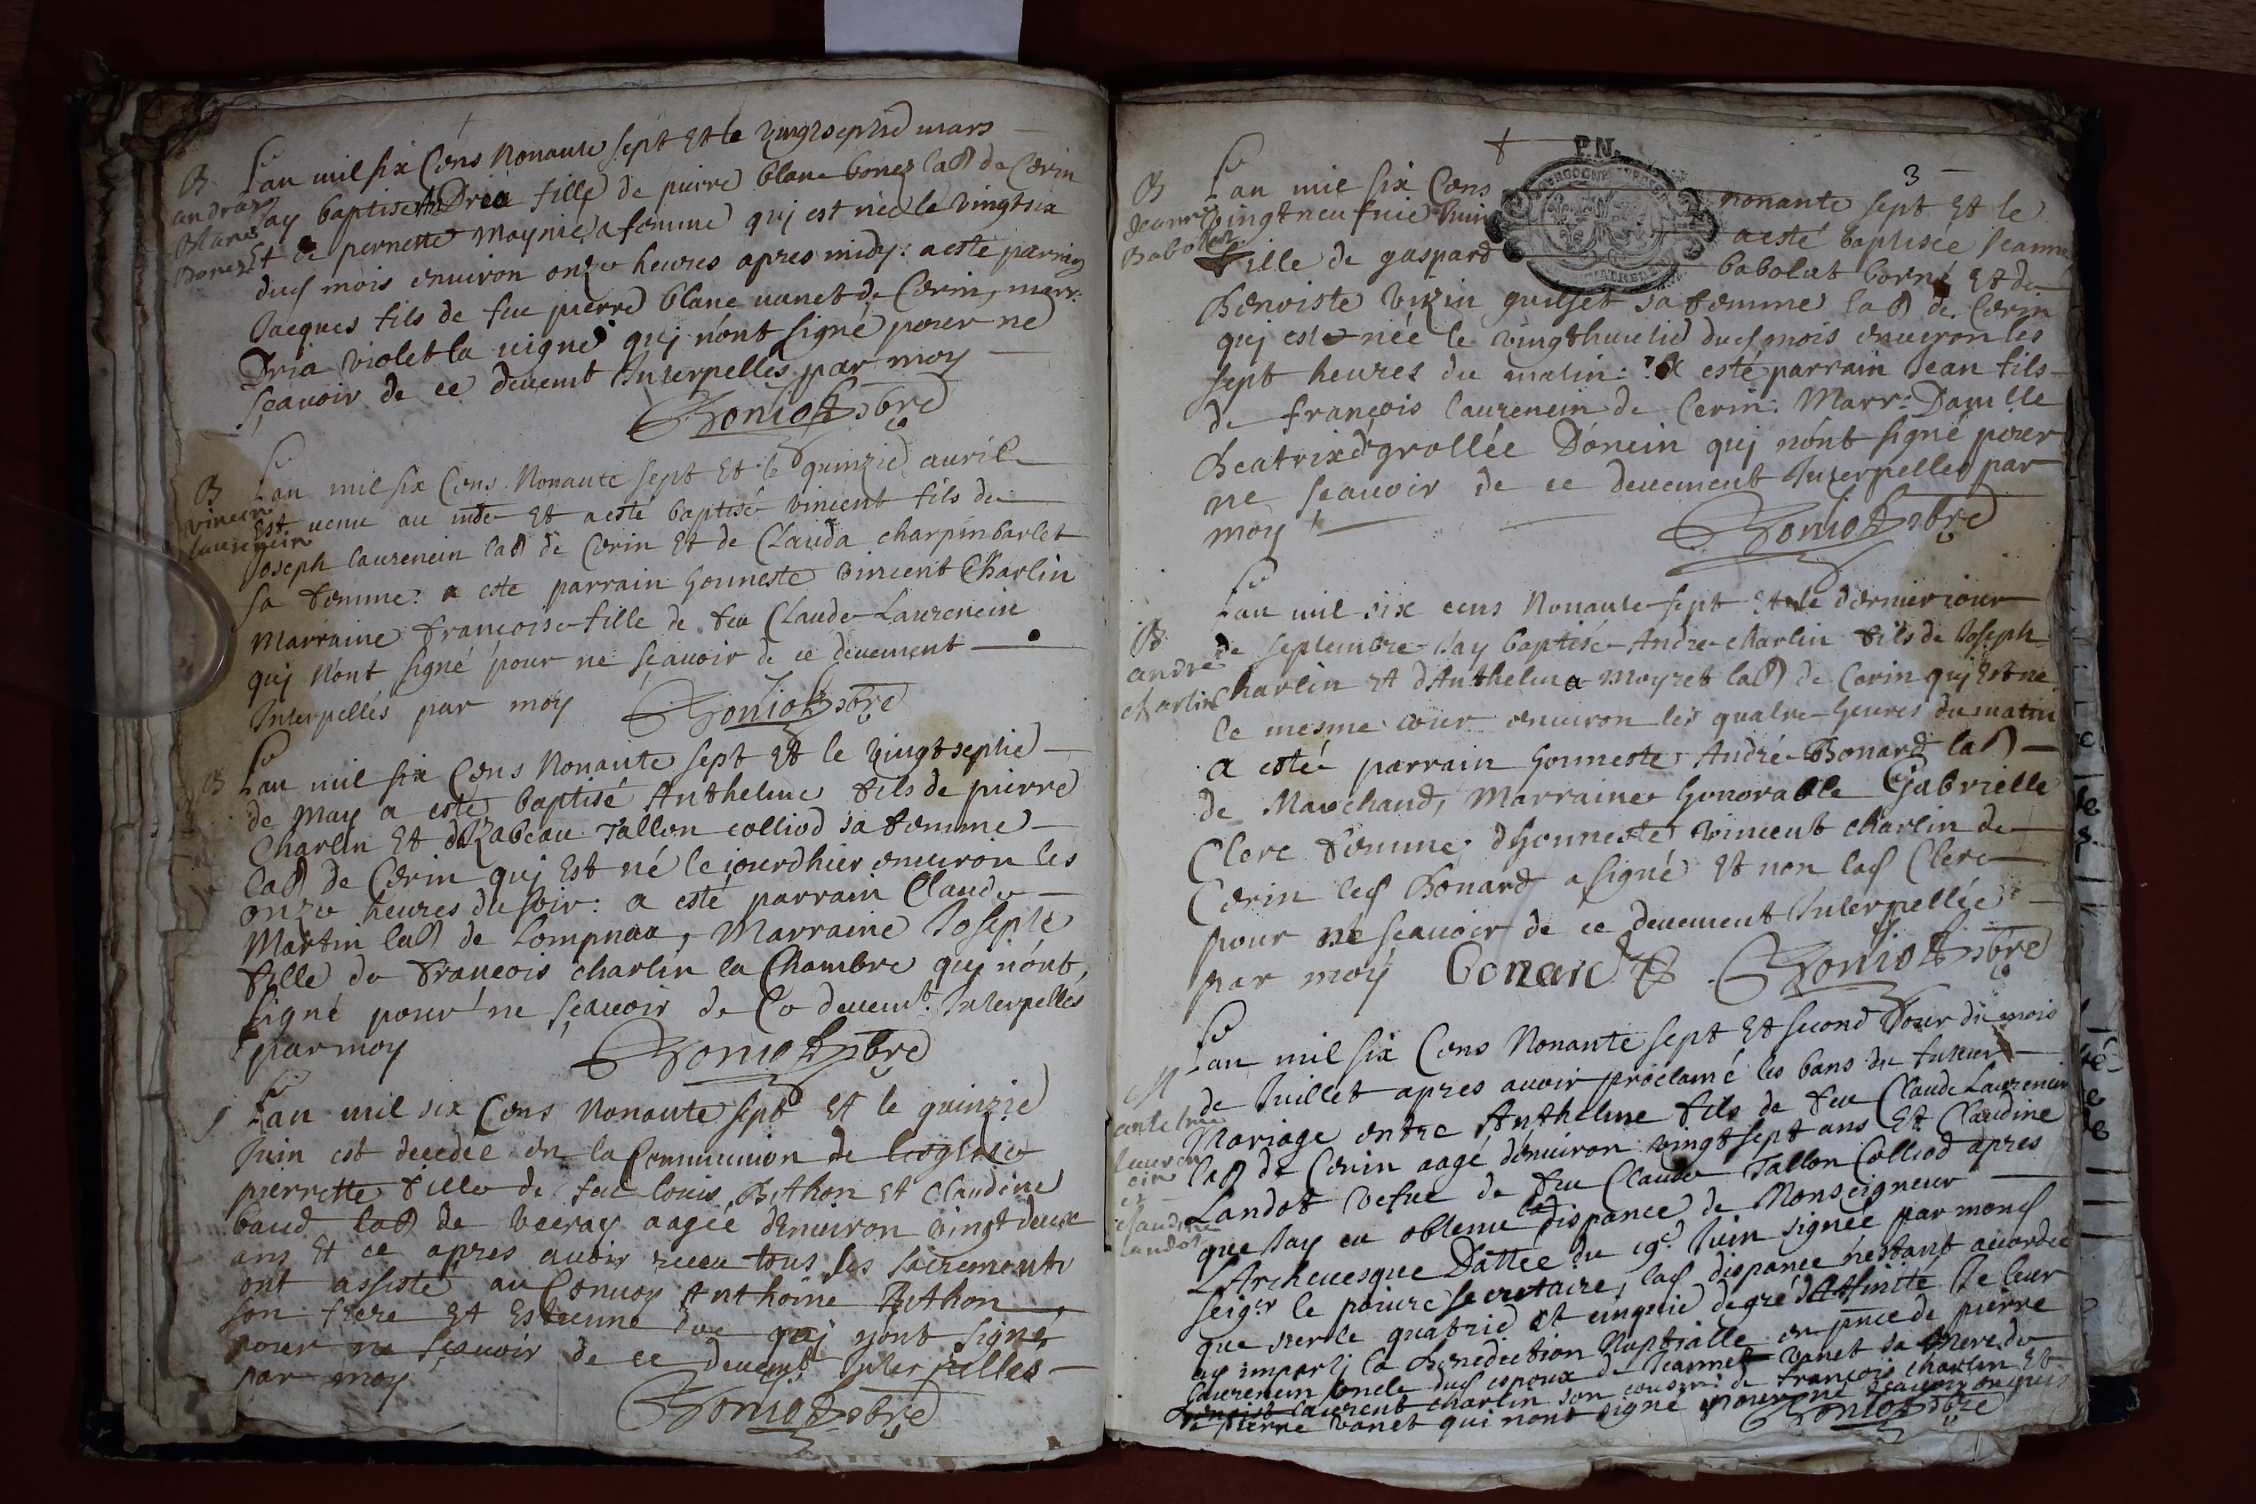 B
andréa
Blanc
Bonez
L'an mil six Cens Nonante sept Et le vingtseptie mars
Jay baptisé AnDréa fille de pierre blanc bonez lab de Cerin
Et de pernette moynie sa femme qui est née le vingtsix
dud mois environ onze heures apres midy: a esté parrin
Jacques fils de feu pierre blanc vanet de Cerin, marr:
Dria violet la vigne qui nont signé pour ne
sçavoir de ce devemt Interpellés par moy
Goniot pbre
B
vincen
laurencin
L'an mil six Cens Nonante sept Et le quinzie avril
Est venu au mde et a esté baptisé vincent fils de
Joseph laurencin lab de Cerin Et de Clauda charpin barlet
sa femme: a esté parrain honneste vincent Charlin
Marraine francoise fille de feu Claude Laurencin
qui Nont signé pour ne sçavoir de ce devement
Interpellés par moy Goniot pbre
B
L'an mil six Cens Nonante sept Et le vingtseptie
de May a esté baptisé Anthelme fils de pierre
Charlin Et dYzabeau Tallon colliod sa femme
lab de Cerin qui Est né le jourdhier environ les
onze heures du soir: a esté parrain Claude
Martin lab de Lompnaa, Marraine Josephte
fille de francois charlin la Chambre qui nont
signé pour ne sçavoir de Ce devemt Interpellés
par moy Goniot pbre
L'an mil six Cens Nonante sept Et le quinzie
Juin est decedée en la Communion de leglise
pierrette fille de feu louis Bithon Et Claudine
baud lab de aagée denviron vingtdeux
ans Et ce apres avoir receu tous les sacrements
ont assisté au Convoy Anthoine Bithon
son frere Et Estienne qui nont signé
pour ne sçavoir de ce devemt Interpellés
par moy
Goniot pbre
P.N.
3
B
Jeanne
Babolat
L'an mil six Cens nonante sept Et le
vingtneufuie Juin a esté baptisée Jeanne
fille de gaspard babolat borné Et de
Benoiste vuzin guilset sa femme lab de Cerin
qui est née le vingthuictie dud mois environ les
sept heures du matin: A esté parrain Jean fils
de françois laurencin de Cerin: Marr: Damlle
Beatrix d grollée Donein qui nont signé pour
ne sçavoir de ce devement Interpellés par
moy
Goniot pbre
B
andré
charlin
L'an mil six cens Nonante sept Et le dernier jour
de septembre Jay baptisé Andre charlin fils de Joseph
Charlin Et dAnthelma Moyret lab de Cerin qui Est né
le mesme jour environ les quatre heures du matin
a esté parrain honneste André Bonard lab
de Marchand, Marraine honorable Gabrielle
Clerc femme dhonneste vincent charlin de
Cerin led Bonard a signé Et non lad Clerc
pour ne sçavoir de ce devement Interpellée
par moy Bonard Goniot pbre
M
antelme
lauren
cin
et
claudine
landot
L'an mil six Cens Nonante sept Et second Jour du mois
de Juillet apres avoir proclamé les bans du futeur
Mariage entre Anthelme fils de feu Claude Laurencin
lab de Cerin aagé denviron vingtsept ans Et Claudine
Landot vefve de feu Claude Tallon Colliod apres
que Jay eu obtenu la dispance de Monseigneur
LArchevesque Dattée du 19e Juin signée par monsr
seigr le poivre secretaire, lad dispance nestant accordée
que sur le quatrie et cinquie degré dAffinité Je leur
ay imparti la Benediction Nuptialle en pnce de pierre
laurencin oncle dud espoux de Jeanne vanet sa Mere de
Benoist laurent charlin son cousin: de francois charlin Et
de pierre vanet qui nont signé pour ne sçavoir enquis
Goniot pbre